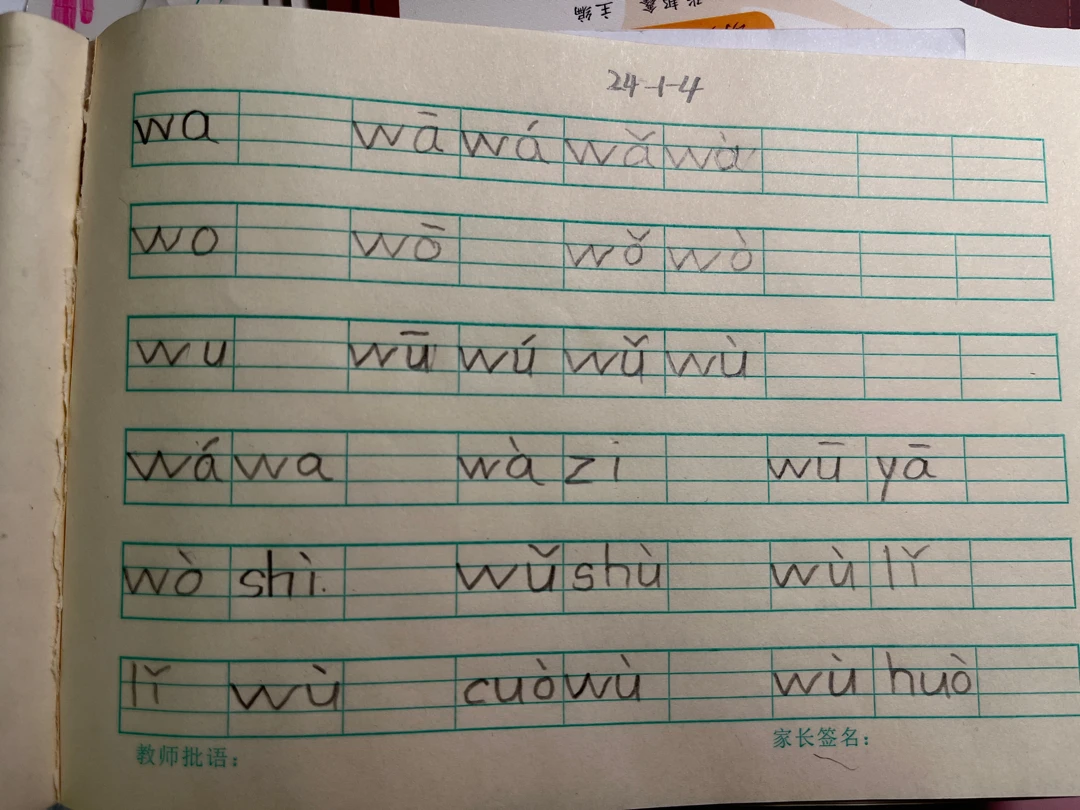 主编
24-1-4
wa wā wá wǎ wà
wo wō wǒ wò
wu wū wú wǔ wù
wá wa wà zi wū yā
wò shì wǔ shù wù lǐ
lǐ wù cuò wù wù huò
教师批语： 家长签名：